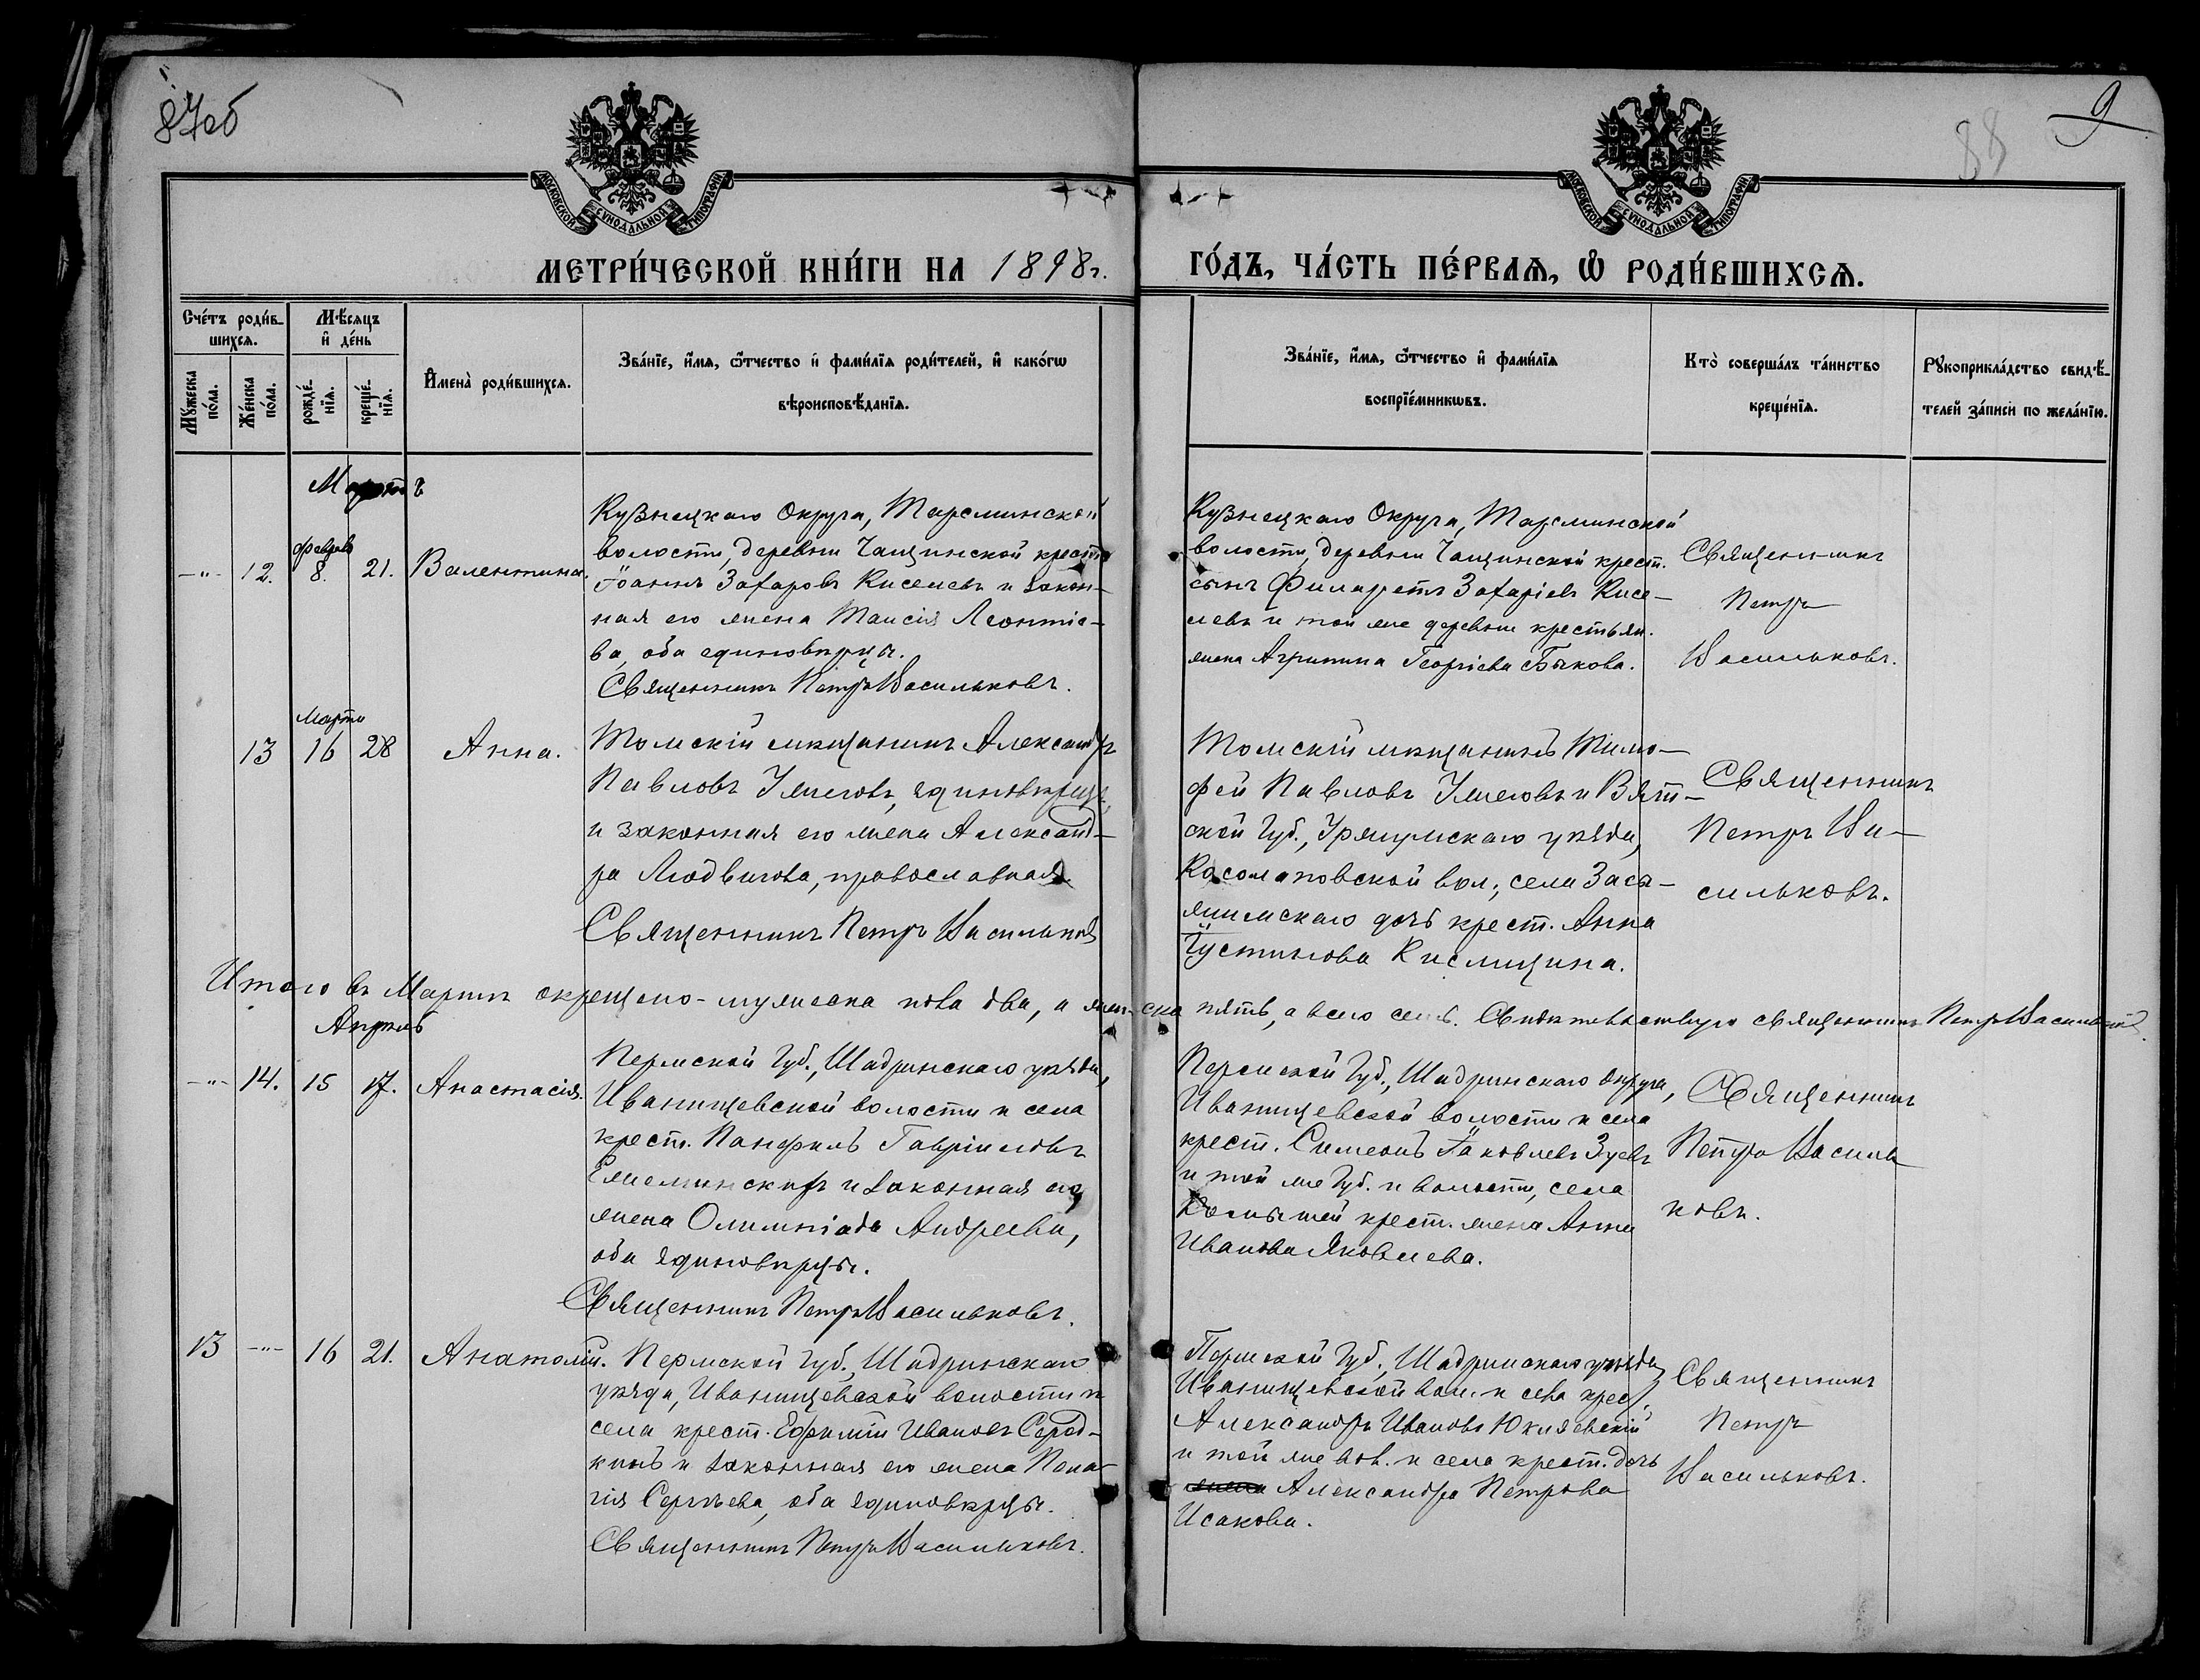 87об
88
9
МОСКОВСКОЙ СѴНОДАЛЬНОЙ ТИПОГРАФІИ
МОСКОВСКОЙ СѴНОДАЛЬНОЙ ТИПОГРАФІИ
МЕТРИ́ЧЕСКОЙ КНИ́ГИ НА 1898 г. ГО́ДЪ, ЧА́СТЬ ПЕ́РВАЯ, Ѡ РОДИ́ВШИХСЯ.
Сче́тъ роди́в-
шихся.
Мѣ́сяцъ
и де́нь
Мꙋ́жеска
по́ла.
Же́нска
по́ла.
рожде́-
нїя.
креще́-
нїя.
Имена̀ роди́вшихся.
Зва́нїе, и́мя, ѻ́тчество и фами́лїя роди́телей, и како́гѡ
вѣроисповѣ́данїя.
Зва́нїе, и́мя, ѻ́тчество и фами́лїя
воспрїе́мникѡвъ.
Кто̀ соверша́лъ та́инство
креще́нїя.
Рꙋкоприкла́дство свидѣ́-
телей за́писи по жела́нїю.
Мартъ
февраля
—"— 12. 8. 21. Валентина.
Кузнецкаго Округа, Тарсминской
волости, деревни Чащинской крест.
Іоаннъ Захаровъ Киселевъ и закон-
ная его жена Таисія Леонтіе-
ва, оба единовѣрцы.
Священникъ Петръ Васильковъ.
Кузнецкаго Округа, Тарсминской
волости, деревни Чащинской крест.
сынъ Филаретъ Захаріевъ Кисе-
левъ и той же деревни крестьян.
жена Агрипина Георгіева Быкова.
Священникъ
Петръ
Васильковъ.
Марта
13 16 28 Анна.
Томскій мѣщанинъ Александръ
Павловъ Ужеговъ, единовѣрецъ,
и законная его жена Александ-
ра Людвигова, православная.
Священникъ Петръ Васильковъ
Томскій мѣщанинъ Тимо-
фей Павловъ Ужеговъ и Вят-
ской Губ., Уржумскаго уѣзда,
вол., села
дочь крест. Анна
Іустинова Кислицина.
Священникъ
Петръ Ва-
сильковъ.
Итого въ Мартѣ окрещено - мужеска пола два, а женска пять, а всего семь. Свидѣтельствую священникъ Петръ Васильковъ.
Апрѣль
—"— 14. 15 17. Анастасія.
Пермской Губ., Шадринскаго уѣзда,
Иванищевской волости и села
крест. Панфилъ Гавріиловъ
и законная его
жена Олимпіада Андреева,
оба единовѣрцы.
Священникъ Петръ Васильковъ.
Пермской Губ., Шадринскаго округа,
Иванищевской волости и села
крест. Симеонъ Іаковлевъ Зуевъ
и той же Губ. и волости, села
крест. жена Анна
Иванова Яковлева.
Священникъ
Петръ Василь
ковъ.
13 —"— 16 21. Анатолій.
Пермской Губ., Шадринскаго
уѣзда, Иванищевской волости и
села крест. Ефимій Ивановъ Серод-
кинъ и законная его жена Пела-
гія Сергѣева, оба единовѣрцы.
Священникъ Петръ Васильковъ.
Пермской Губ., Шадринскаго уѣзда,
Иванищевской вол. и села крест.
Александръ Ивановъ Юкляевскій
и той же вол. и села крест. дочь
жена Александра Петрова
Исакова.
Священникъ
Петръ
Васильковъ.